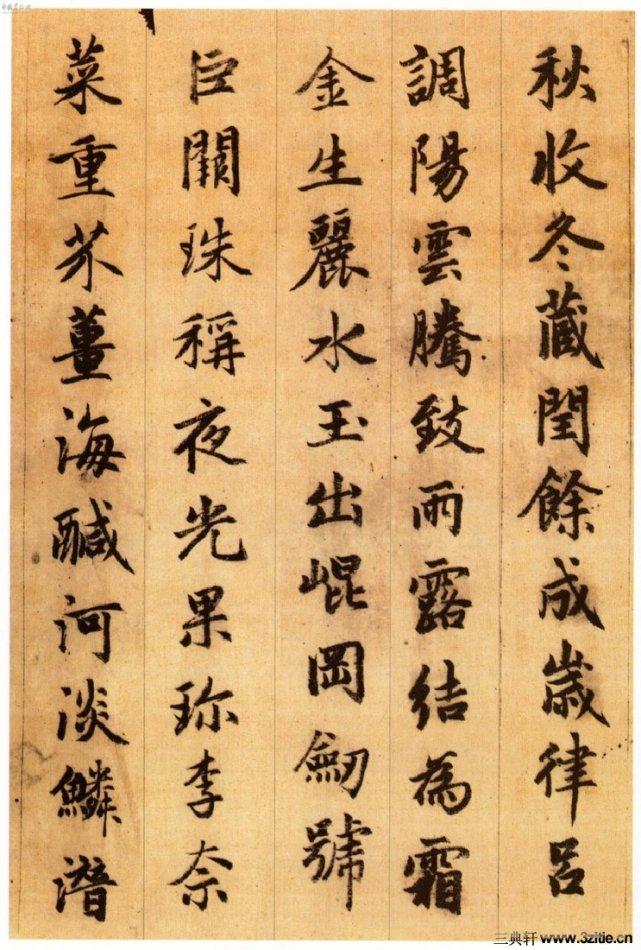 秋收冬藏閏餘成歲律呂
調陽雲騰致雨露結為霜
金生麗水玉出崐岡劒號
巨闕珠稱夜光果珎李柰
菜重芥薑海醎河淡鱗潛
三典轩 www.3zitie.cn